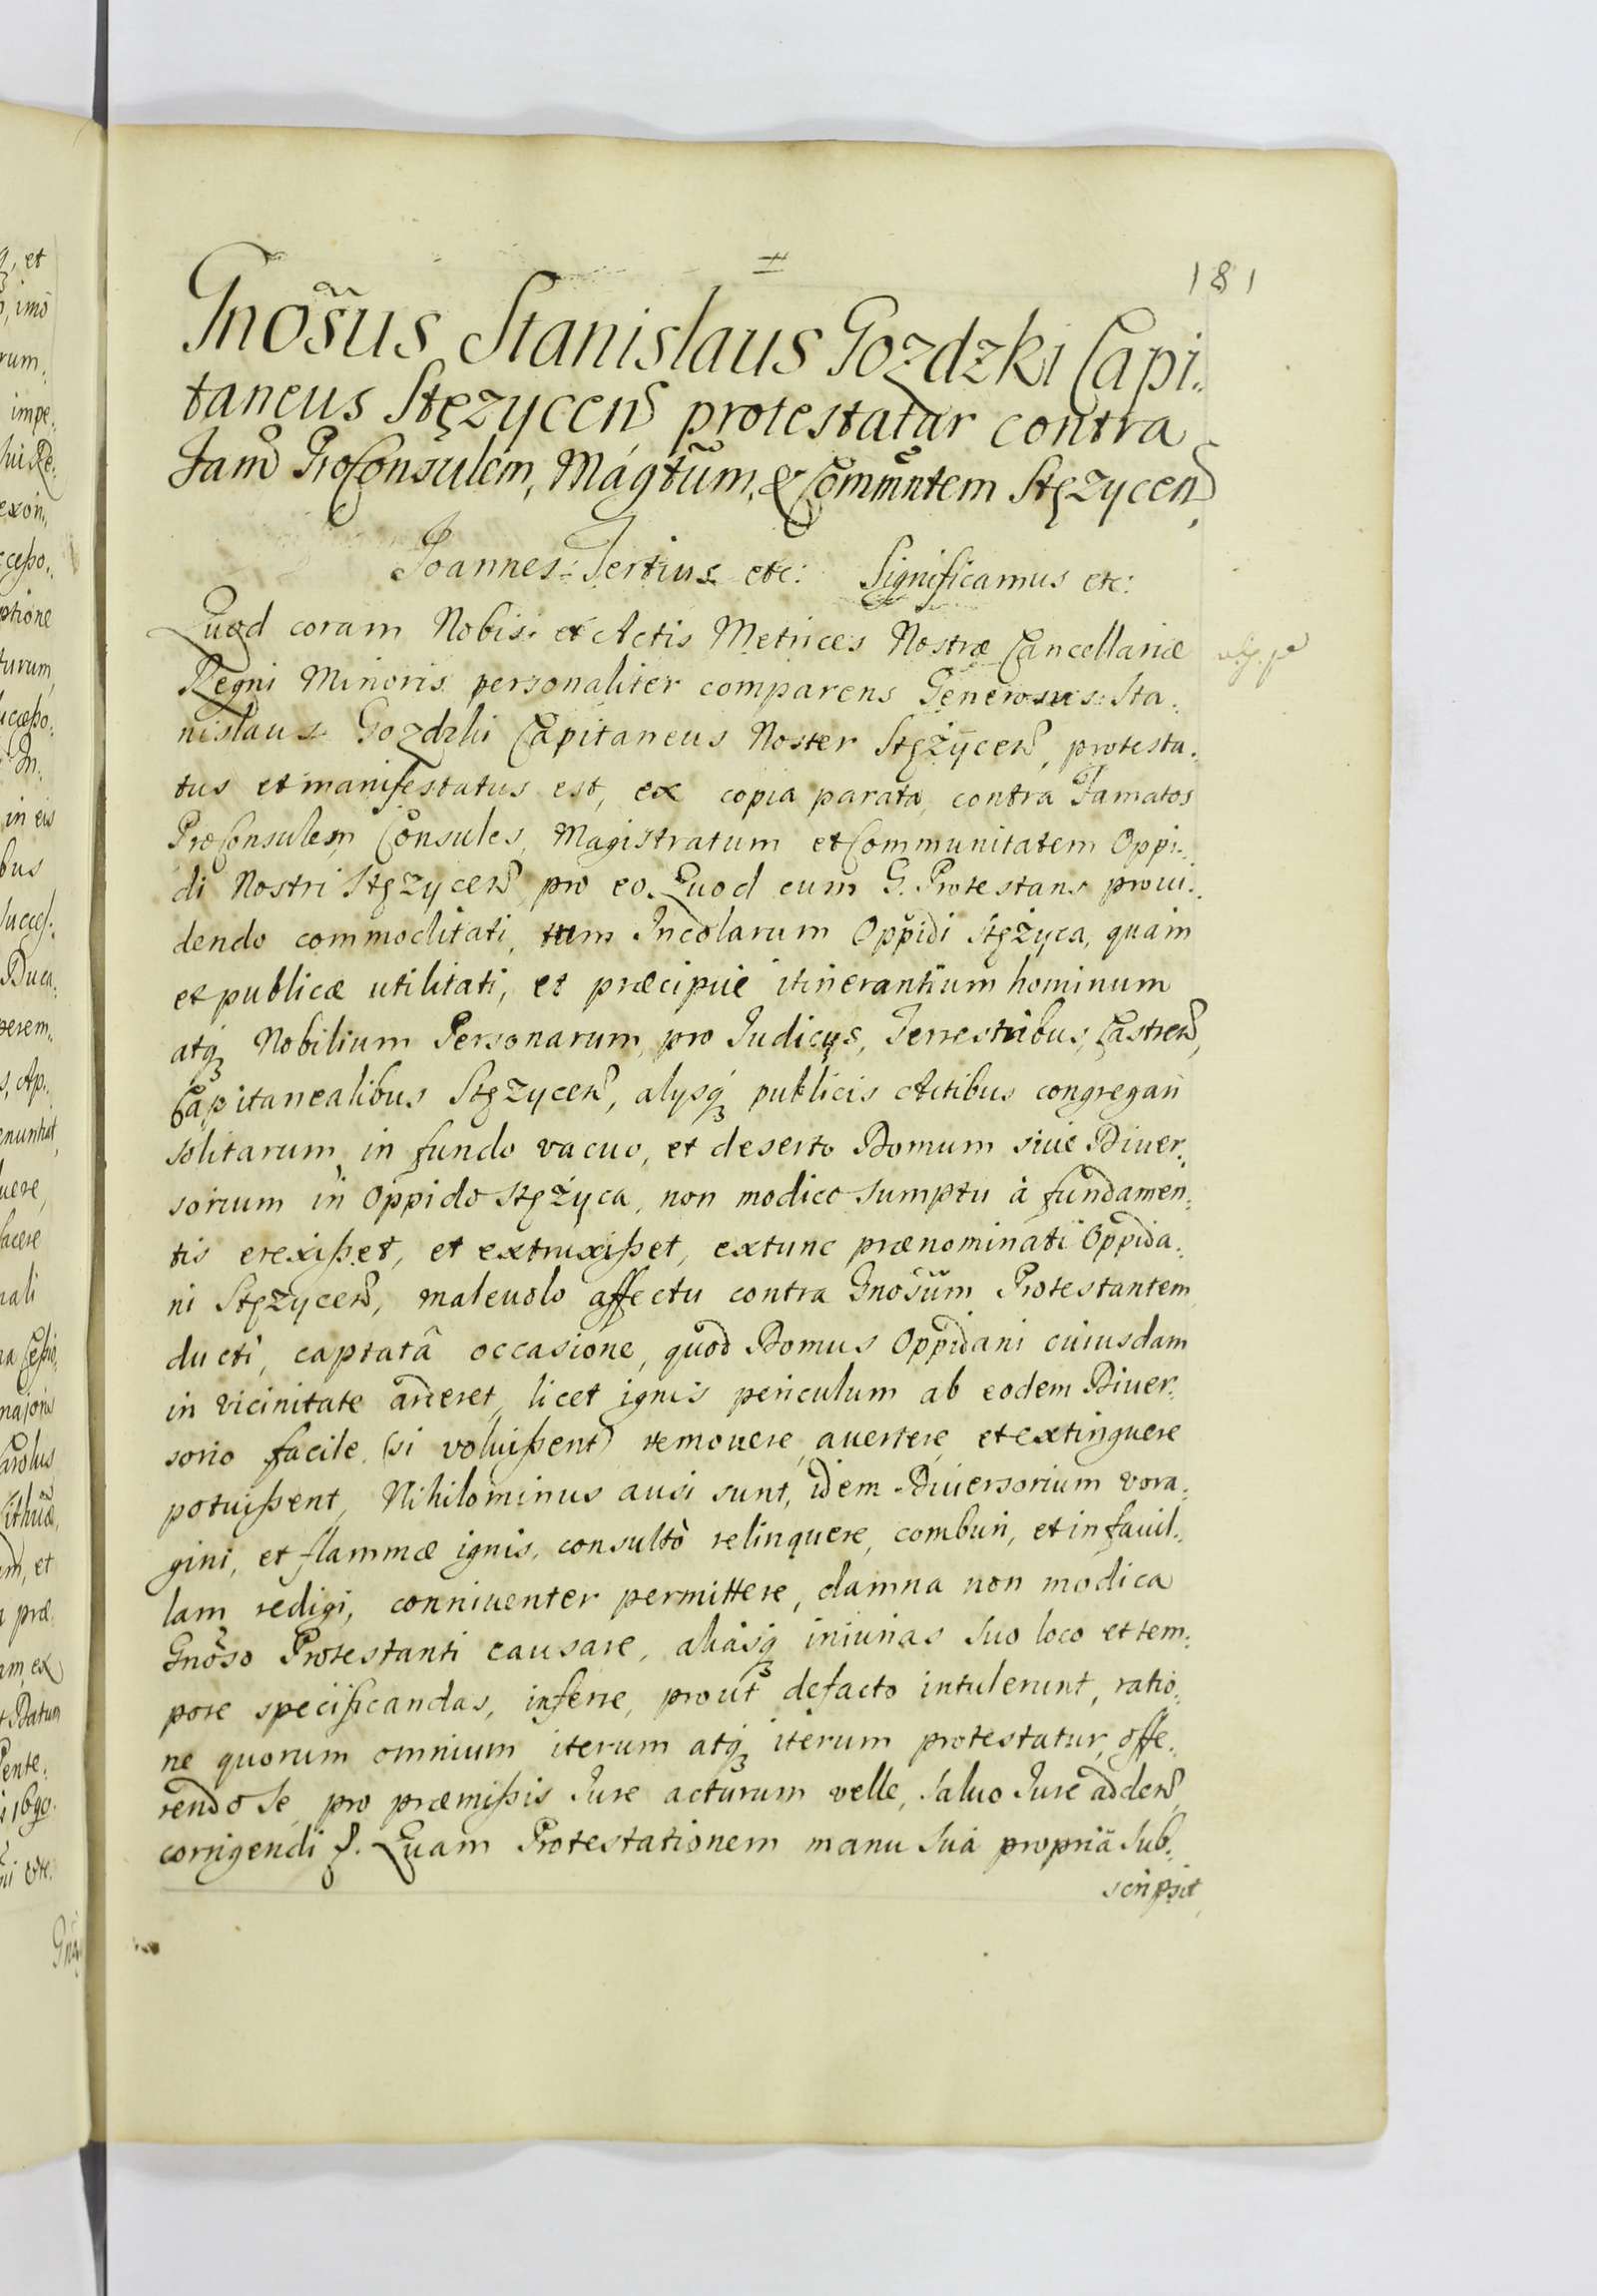 181
Gnosus Stanislaus Gozdzki Capi:
taneus Stęzycens protestatur contra
Fam ProConsulem, Magtum, & Commntem Stęzycens
Joannes Tertius etc: Significamus etc:
Quod coram Nobis et Actis Metrices Nostræ Cancellariæ
Regni Minoris personaliter comparens Generosus Sta:
nislaus Gozdzki Capitaneus Noster Stężycens, protesta:
tus et manifestatus est, ex copia parata, contra Famatos
ProConsulem, Consules, Magistratum et Communitatem Oppi:
di Nostri Stęzycens pro eo. Quod cum G. Protestans proui:
dendo commoditati, tum Incolarum Oppidi Stężyca, quàm
et publicæ utilitati, et præcipuè itinerantium hominum
atq Nobilium Personarum, pro Judicys, Terrestribus, Castrens,
Capitanealibus Stęzycens, alysq publicis Actibus congregari
solitarum, in fundo vacuo, et deserto Domum siue Diuer:
sorium in Oppido Stężyca, non modico sumptu à fundamen:
tis erexißet, et extruxißet, extunc prænominati Oppida:
ni Stęzycens, maleuolo affectu contra Gnosum Protestantem
ducti, captatâ occasione, quod Domus Oppidani cuiusdam
in vicinitate arderet, licet ignis periculum ab eodem Diuer:
sorio facile (si voluißent) remouere, auertere, et extinguere
potuißent, Nihilominus ausi sunt, idem Diuersorium vora:
gini, et flammæ ignis, consultò relinquere, comburi, et in fauil:
lam redigi, conniuenter permittere, damna non modica
Gnoso Protestanti causare, aliasq iniurias suo loco et tem:
pore specificandas, inferre, prout defacto intulerunt, ratio:
ne quorum omnium iterum atq iterum protestatur, offe:
rendo se, pro præmißis Jure acturum velle, saluo Jure addens,
corrigendi p. Quam Protestationem manu suâ propriâ sub:
scripsit